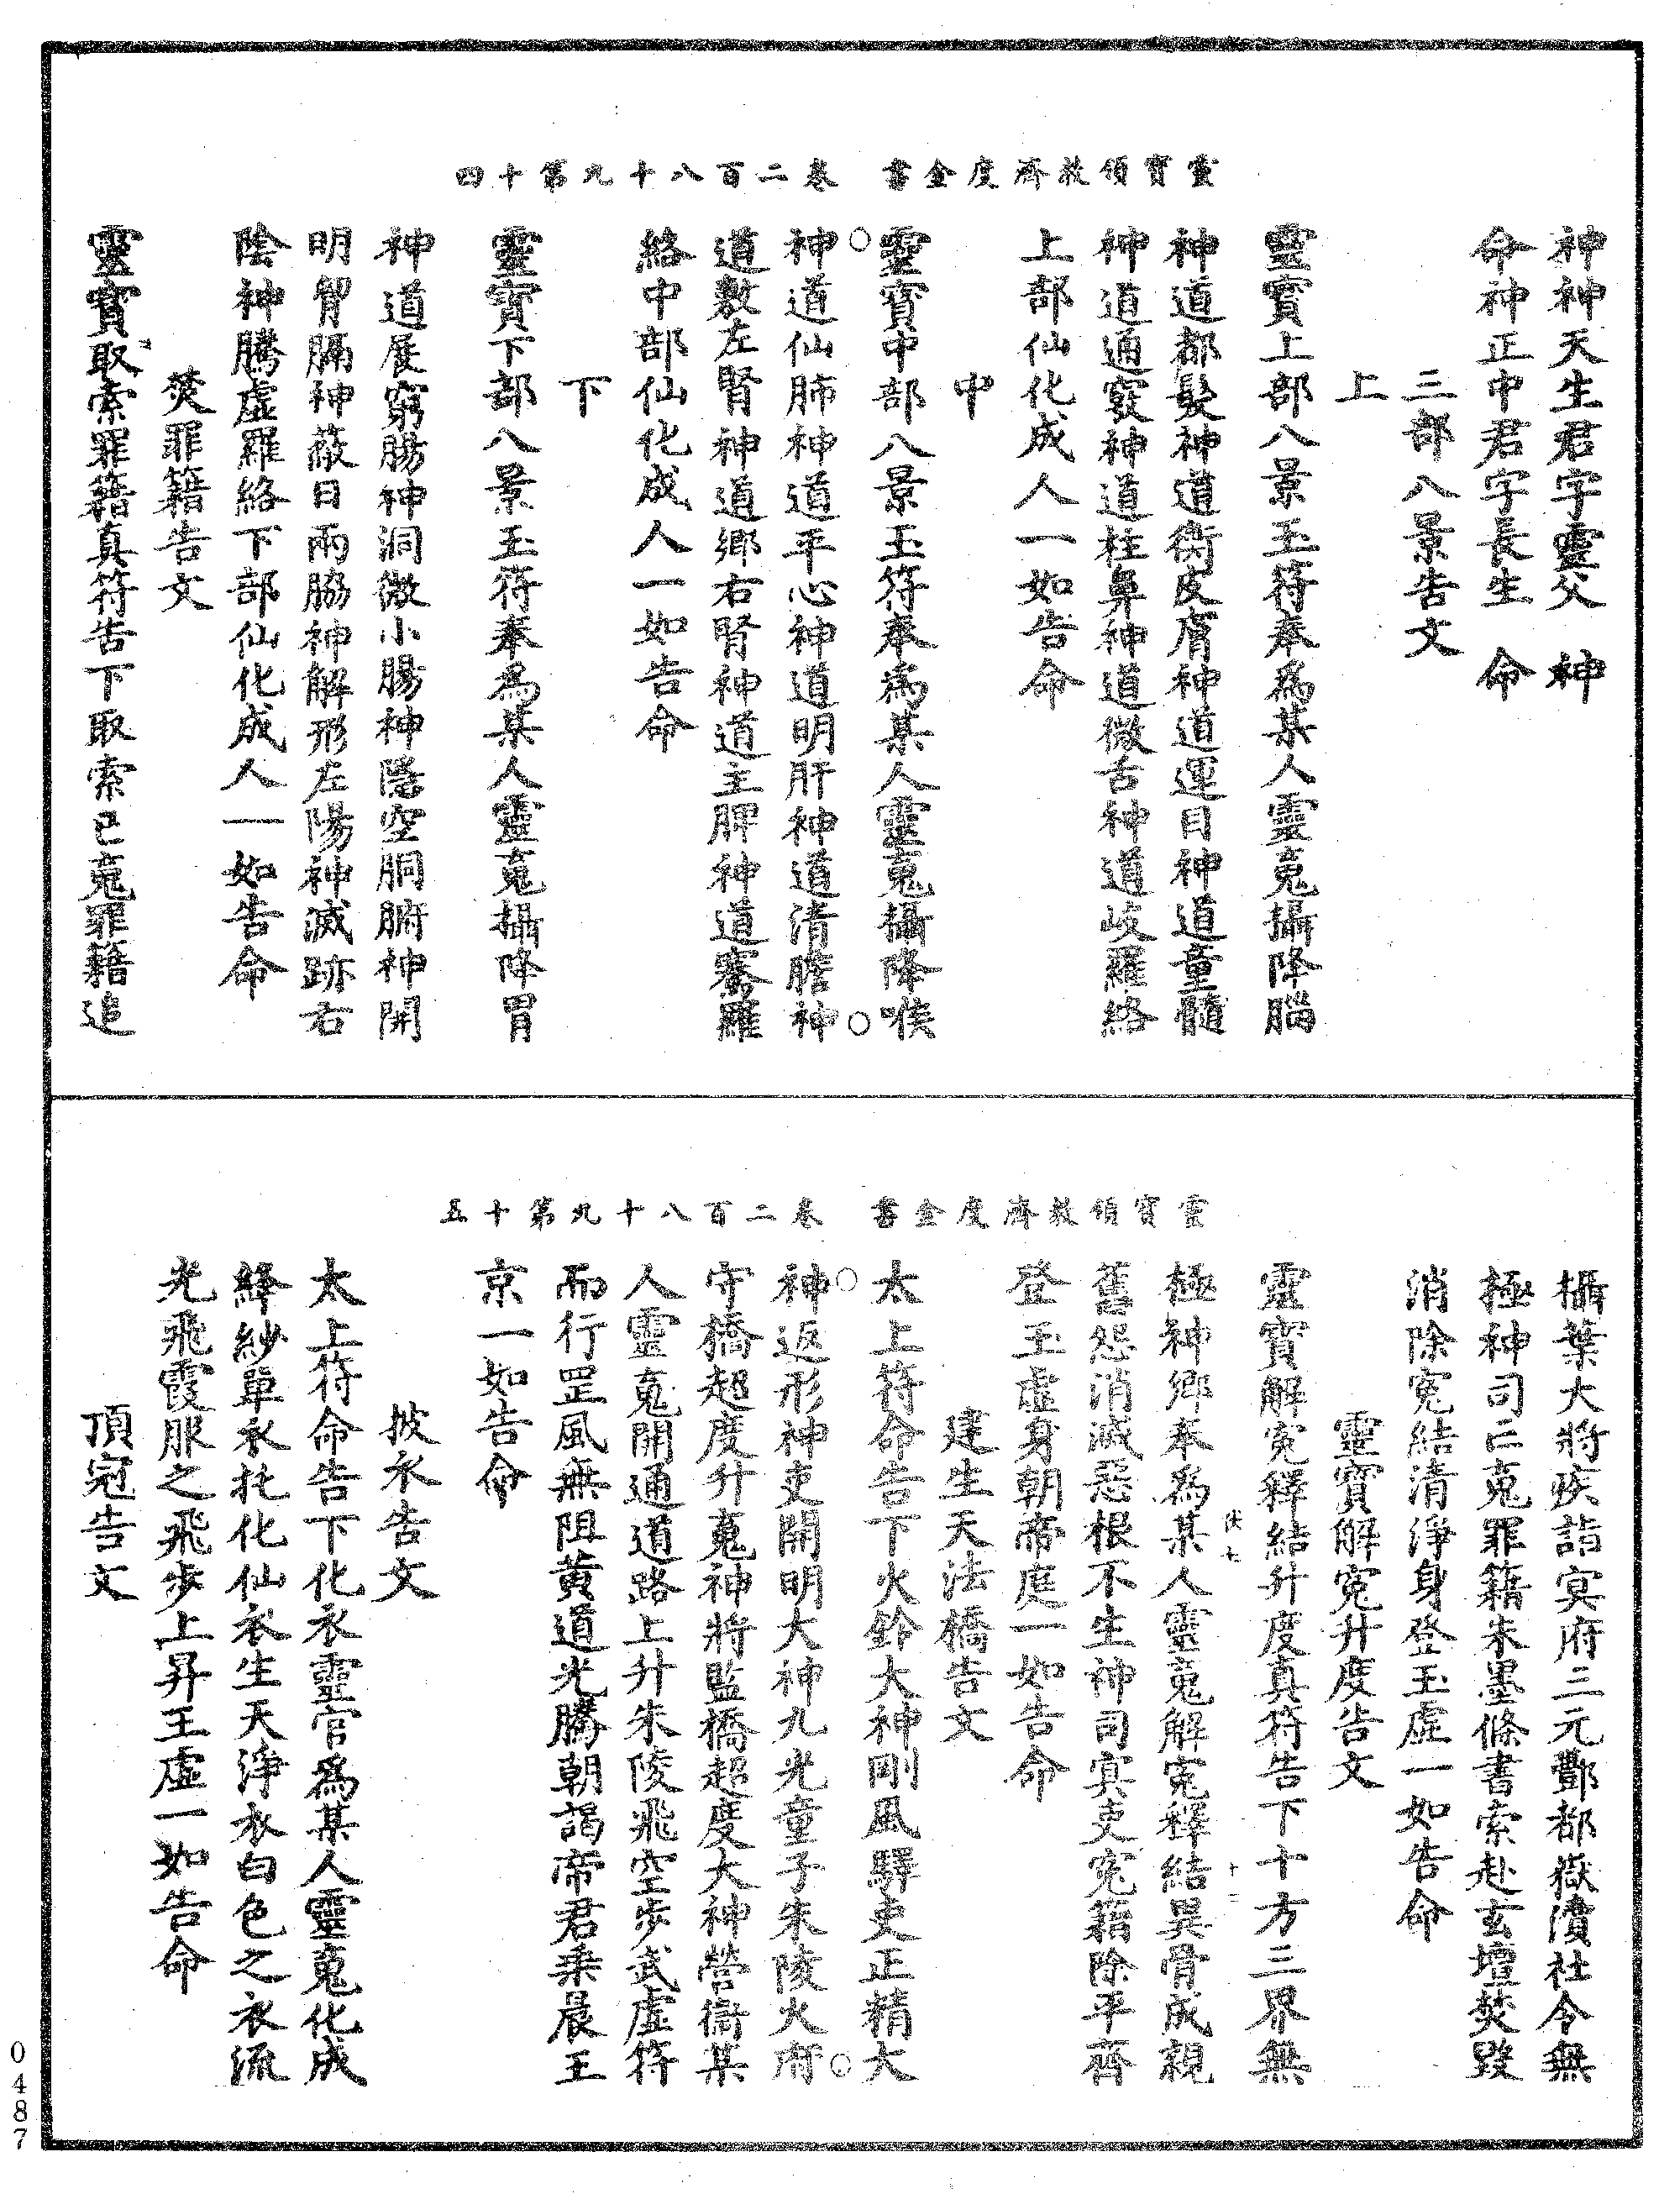 靈寶領教濟度金書　卷二百八十九第十四
神神天生君字靈父　神
命神正中君字長生　命
三部八景告文
上
靈寶上部八景玉符奉為某人靈䰟攝降腦
神道都髮神道衡皮膚神道運目神道童髓
神道通竅神道柱鼻神道微舌神道岐羅絡
上部仙化成人一如告命
中
靈寶中部八景玉符奉為某人靈䰟攝降喉
神道仙肺神道平心神道明肝神道清膽神
道敷左腎神道鄉右腎神道主脾神道騫羅
絡中部仙化成人一如告命
下
靈寶下部八景玉符奉為某人靈䰟攝降胃
神道展窮腸神洞微小腸神隱空胴腑神開
明胷膈神蔽日兩脇神解形左陽神滅跡右
陰神騰虛羅絡下部仙化成人一如告命
焚罪籍告文
靈寶取索罪籍真符告下取索亡䰟罪籍追
靈寶領教濟度金書　卷二百八十九第十五
攝葉大將疾詣冥府三元酆都嶽瀆社令無
極神司亡䰟罪籍朱墨條書索赴玄壇焚毀
消除寃結清淨身登玉虛一如告命
靈寶解寃升度告文
靈寶解寃釋結升度真符告下十方三界無
極神鄉奉為某人靈䰟解寃釋結異骨成親
舊怨消滅惡根不生神司冥吏寃籍除平齊
登玉虛身朝帝庭一如告命
建生天法橋告文
太上符命告下火鈴大神剛風驛吏正精大
神返形神吏開明大神九光童子朱陵火府
守橋超度升䰟神將監橋超度大神營衛某
人靈䰟開通道路上升朱陵飛空步武虛符
而行罡風無阻黃道光騰朝謁帝君乘晨王
京一如告命
披衣告文
太上符命告下化衣靈官為某人靈䰟化成
絳紗單衣托化仙衣生天淨衣白色之衣流
光飛霞服之飛步上昇玉虛一如告命
頂冠告文
0487